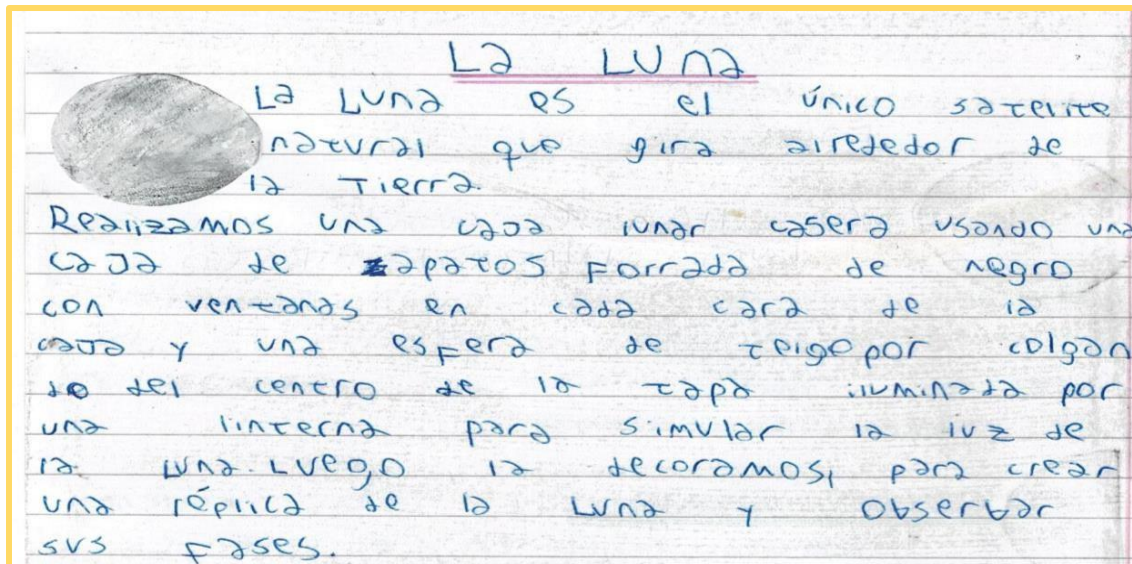 La Luna
La Luna es el único satelite
natural que gira alrededor de
la Tierra.
Realizamos una caja lunar casera usando una
caja de zapatos forrada de negro
con ventanas en cada cara de la
caja y una esfera de telgopor colgan
do del centro de la tapa iluminada por
una linterna para simular la luz de
la luna. Luego la decoramos, para crear
una réplica de la Luna y obserbar
sus fases.